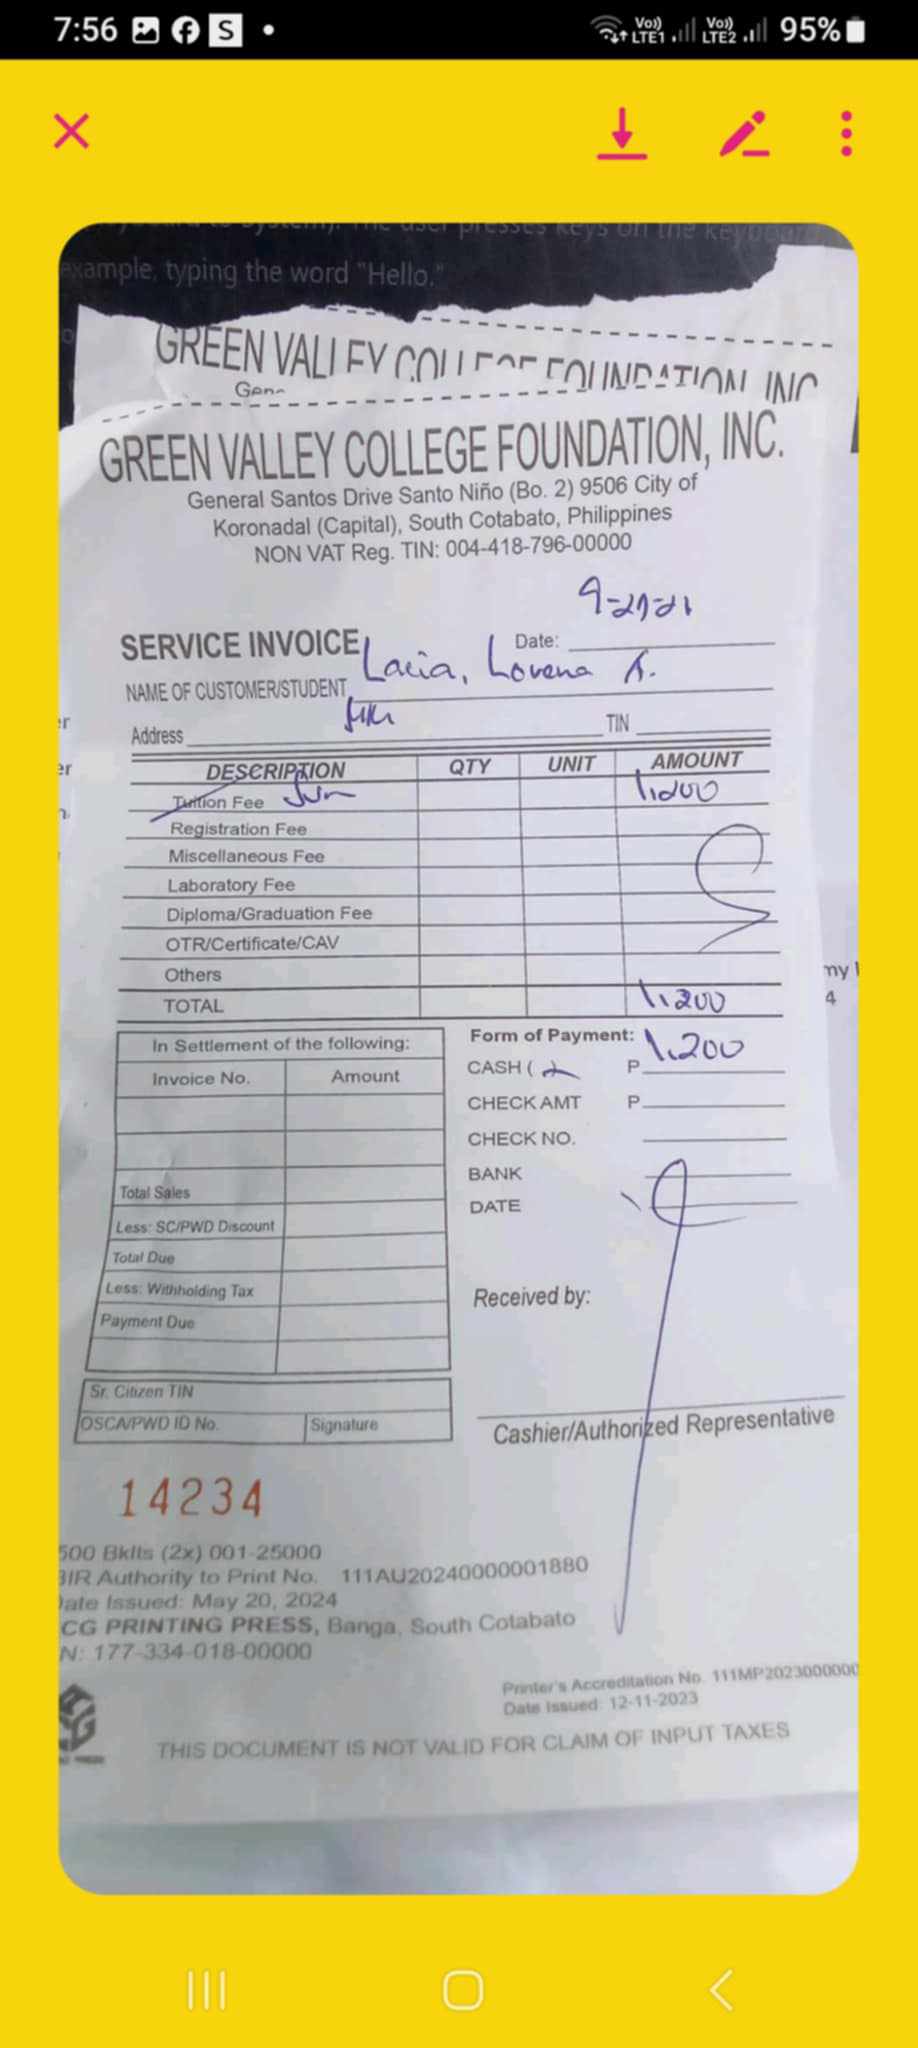 7:56 S Vo)) LTE1 Vo)) LTE2 95%
example, typing the word "Hello."
GREEN VALLEY COLLEGE FOUNDATION, INC
GREEN VALLEY COLLEGE FOUNDATION, INC.
General Santos Drive Santo Niño (Bo. 2) 9506 City of
Koronadal (Capital), South Cotabato, Philippines
NON VAT Reg. TIN: 004-418-796-00000
SERVICE INVOICE Date:
NAME OF CUSTOMER/STUDENT Lacia, Lovena A.
Address TIN
DESCRIPTION QTY UNIT AMOUNT
Tuition Fee 1,200
Registration Fee
Miscellaneous Fee
Laboratory Fee
Diploma/Graduation Fee
OTR/Certificate/CAV
Others
TOTAL 1,200
In Settlement of the following:
Invoice No. Amount
Total Sales
Less: SC/PWD Discount
Total Due
Less: Withholding Tax
Payment Due
Sr. Citizen TIN
OSCA/PWD ID No. Signature
Form of Payment:
CASH ( P 1,200
CHECK AMT P
CHECK NO.
BANK
DATE
Received by:
Cashier/Authorized Representative
14234
500 Bklts (2x) 001-25000
BIR Authority to Print No. 111AU20240000001880
Date Issued: May 20, 2024
CG PRINTING PRESS, Banga, South Cotabato
N: 177-334-018-00000
Printer's Accreditation No. 111MP2023000000
Date Issued: 12-11-2023
THIS DOCUMENT IS NOT VALID FOR CLAIM OF INPUT TAXES